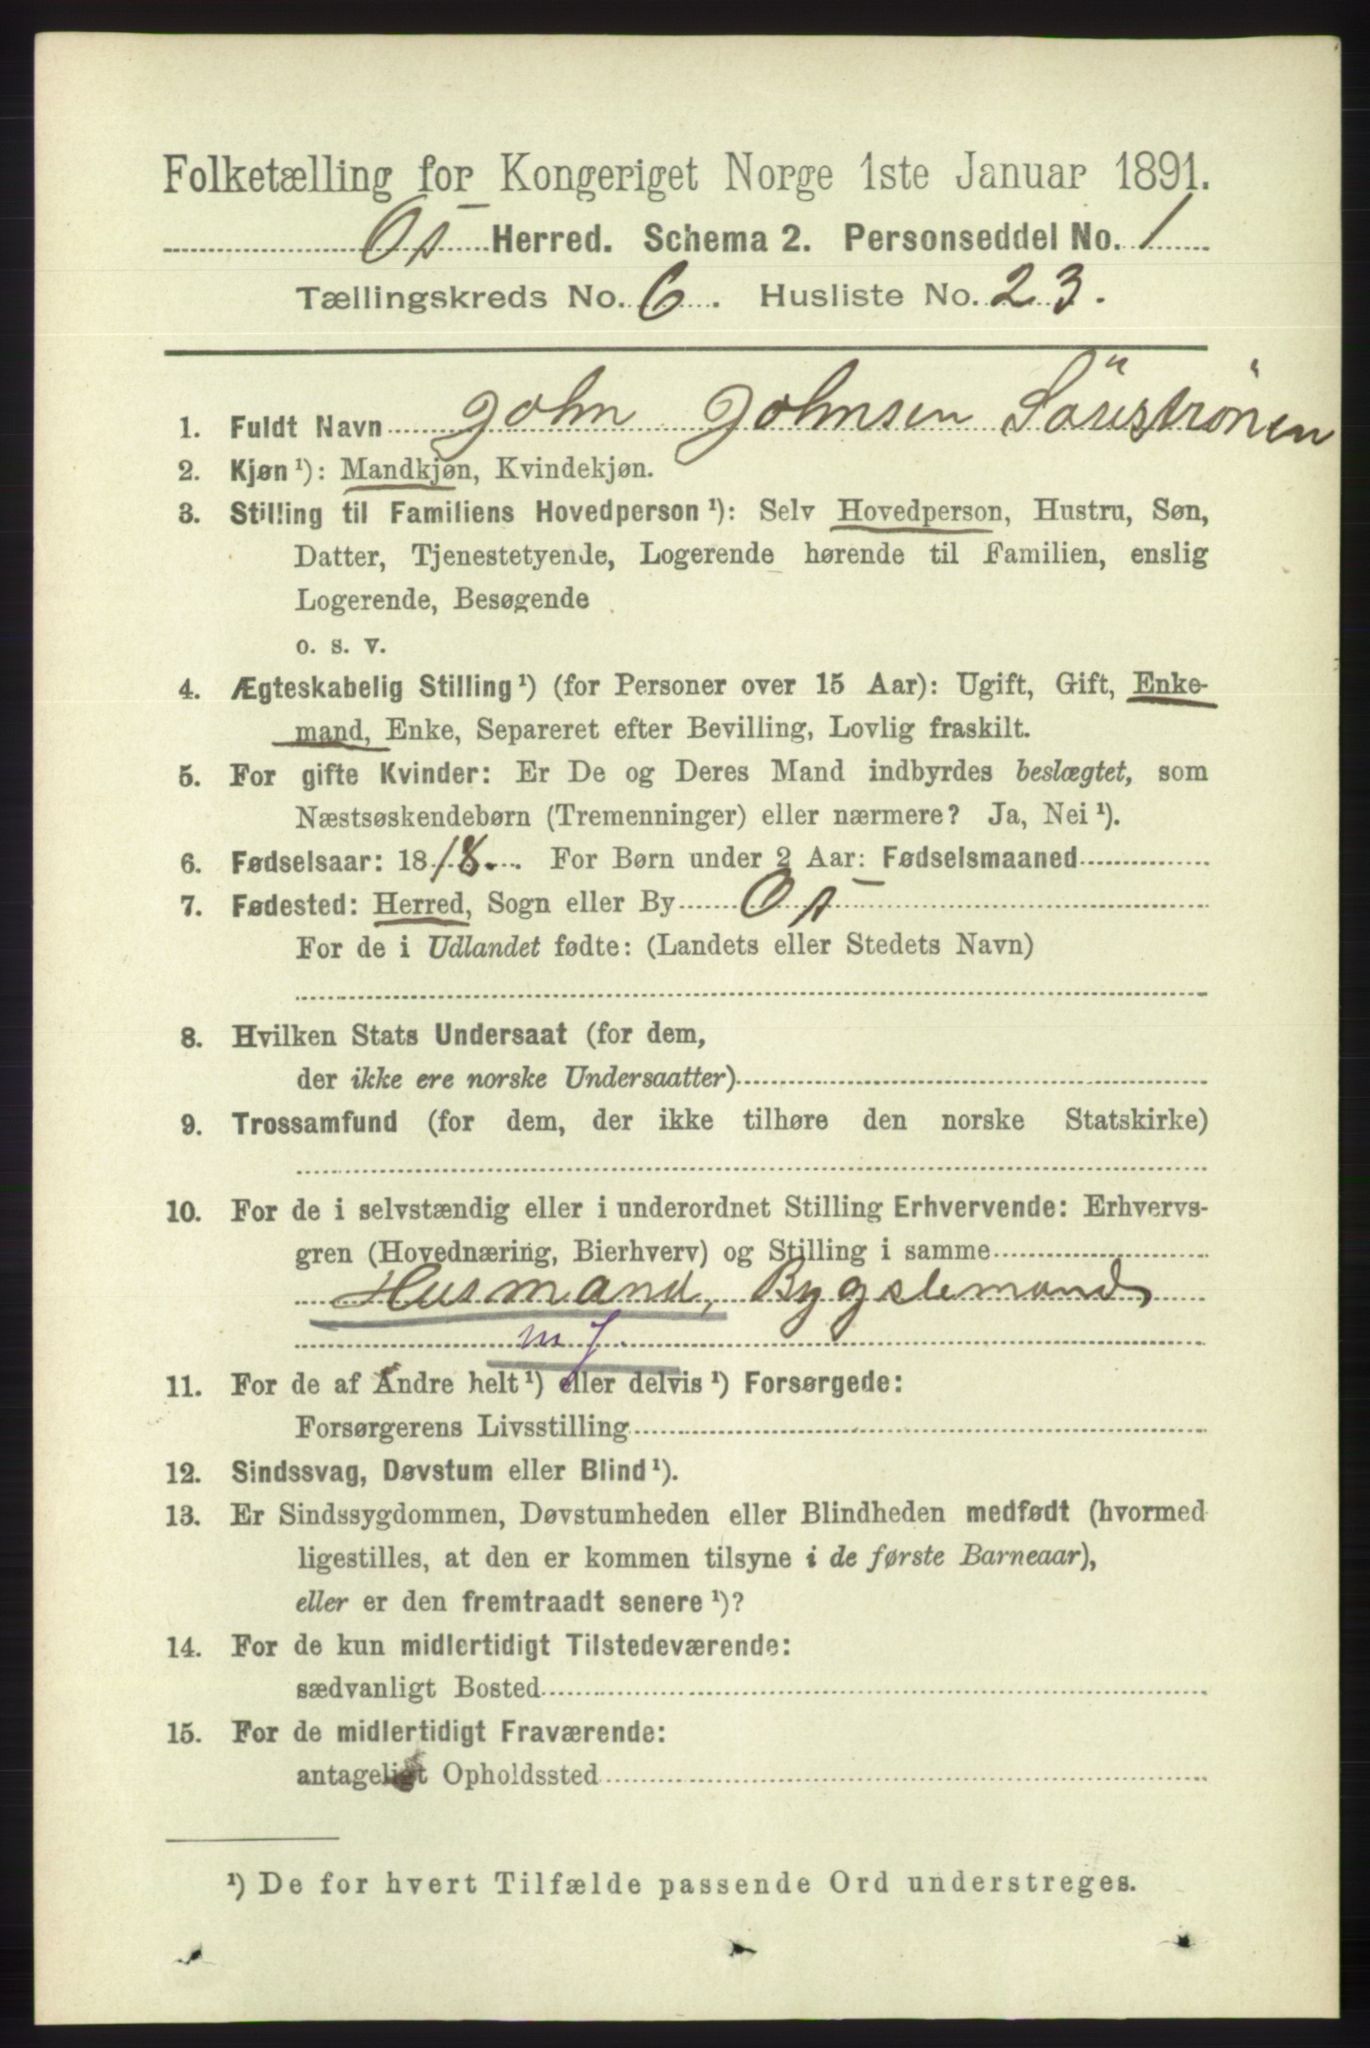 Folketælling for Kongeriget Norge 1ste Januar 1891.
Os Herred. Schema 2. Personseddel No. 1
Tællingskreds No. 6. Husliste No. 23.
1. Fuldt Navn John Johnsen Söreströnen
2. Kjøn¹): Mandkjøn, Kvindekjøn.
3. Stilling til Familiens Hovedperson¹): Selv Hovedperson, Hustru, Søn,
Datter, Tjenestetyende, Logerende hørende til Familien, enslig
Logerende, Besøgende
o. s. v.
4. Ægteskabelig Stilling¹) (for Personer over 15 Aar): Ugift, Gift, Enke-
mand, Enke, Separeret efter Bevilling, Lovlig fraskilt.
5. For gifte Kvinder: Er De og Deres Mand indbyrdes beslægtet, som
Næstsøskendebørn (Tremenninger) eller nærmere? Ja, Nei¹).
6. Fødselsaar: 1818. For Børn under 2 Aar: Fødselsmaaned
7. Fødested: Herred, Sogn eller By Os
For de i Udlandet fødte: (Landets eller Stedets Navn)
8. Hvilken Stats Undersaat (for dem,
der ikke ere norske Undersaatter)
9. Trossamfund (for dem, der ikke tilhøre den norske Statskirke)
10. For de i selvstændig eller i underordnet Stilling Erhvervende: Erhvervs-
gren (Hovednæring, Bierhverv) og Stilling i samme
Husmand, Bygslemand
m j.
11. For de af Andre helt¹) eller delvis¹) Forsørgede:
Forsørgerens Livsstilling
12. Sindssvag, Døvstum eller Blind¹).
13. Er Sindssygdommen, Døvstumheden eller Blindheden medfødt (hvormed
ligestilles, at den er kommen tilsyne i de første Barneaar),
eller er den fremtraadt senere¹)?
14. For de kun midlertidigt Tilstedeværende:
sædvanligt Bosted
15. For de midlertidigt Fraværende:
antageligt Opholdssted
¹) De for hvert Tilfælde passende Ord understreges.